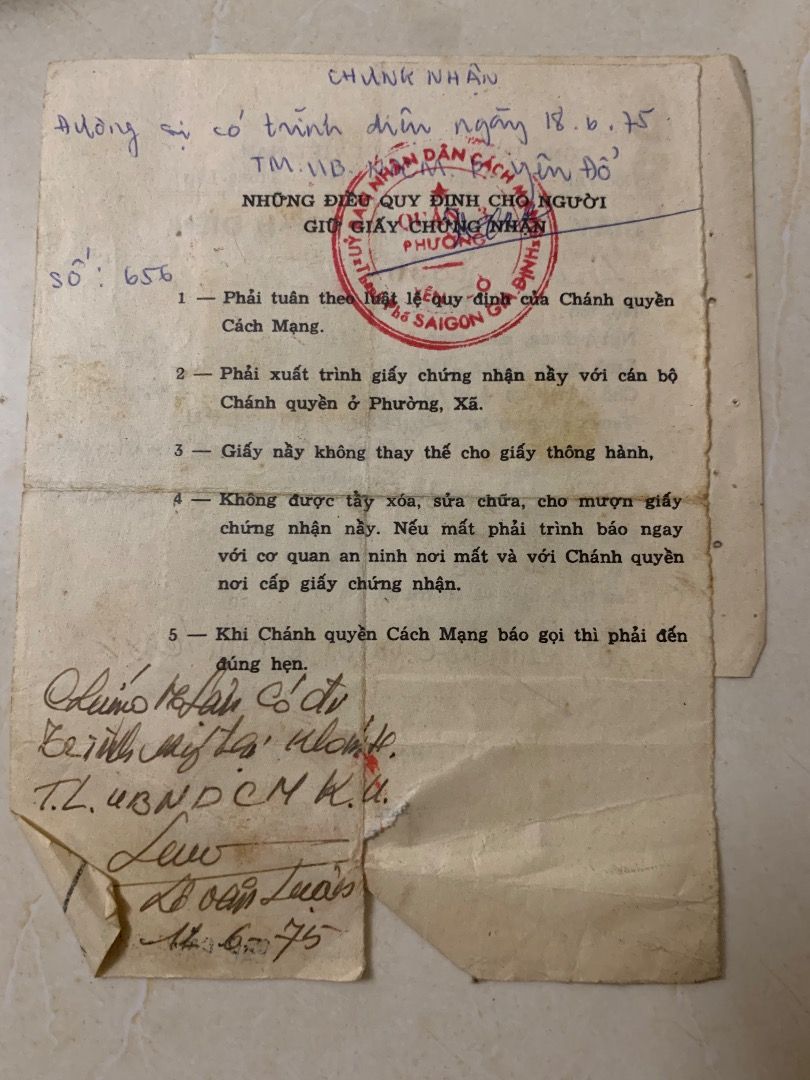 CHỨNG NHẬN
Đương sự có trình diện ngày 18.6.75
TM.UB. NDCM P. Yên Đổ
NHỮNG ĐIỀU QUY ĐỊNH CHO NGƯỜI
GIỮ GIẤY CHỨNG NHẬN
ỦY BAN NHÂN DÂN CÁCH MẠNG
QUẬN 3
PHƯỜNG
YÊN ĐỔ
Thành Phố SAIGON GIA-ĐỊNH
Số: 656
1 — Phải tuân theo luật lệ quy định của Chánh quyền
Cách Mạng.
2 — Phải xuất trình giấy chứng nhận nầy với cán bộ
Chánh quyền ở Phường, Xã.
3 — Giấy nầy không thay thế cho giấy thông hành,
4 — Không được tẩy xóa, sửa chữa, cho mượn giấy
chứng nhận nầy. Nếu mất phải trình báo ngay
với cơ quan an ninh nơi mất và với Chánh quyền
nơi cấp giấy chứng nhận.
5 — Khi Chánh quyền Cách Mạng báo gọi thì phải đến
đúng hẹn.
Chứng nhận có đ/v
trình diện tại khóm
T.L. UBNDCM K.
6-75